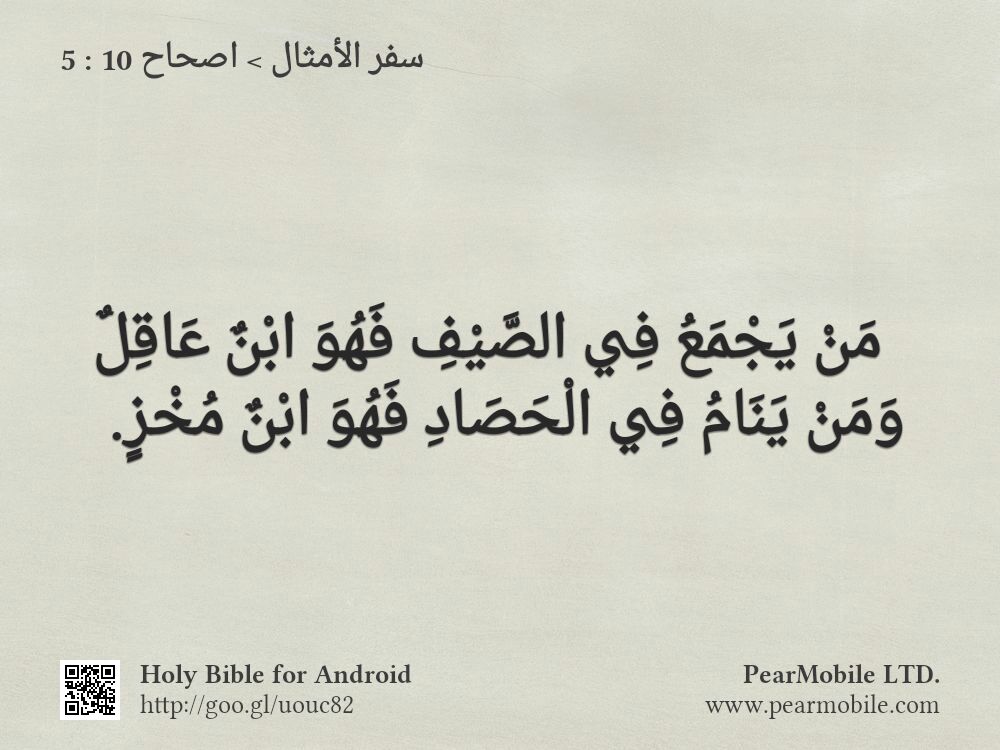 سفر الأمثال > اصحاح 10 : 5
مَنْ يَجْمَعُ فِي الصَّيْفِ فَهُوَ ابْنٌ عَاقِلٌ
وَمَنْ يَنَامُ فِي الْحَصَادِ فَهُوَ ابْنٌ مُخْزٍ.
Holy Bible for Android
http://goo.gl/uouc82
PearMobile LTD.
www.pearmobile.com